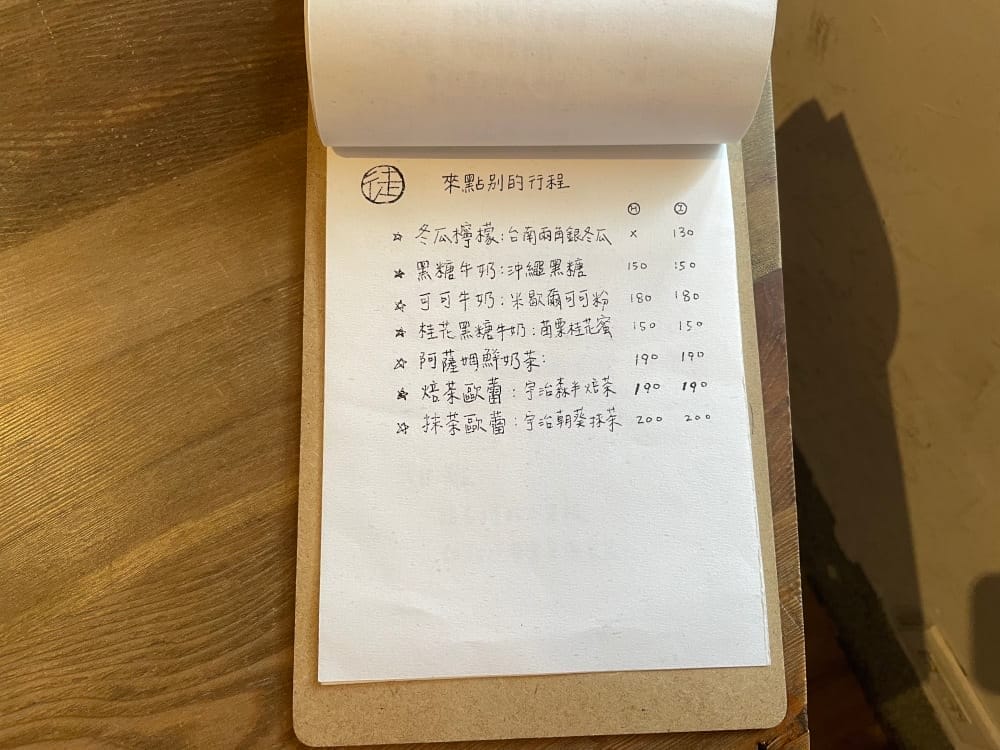 徒 來點別的行程
Ⓗ Ⓘ
☆ 冬瓜檸檬:台南兩角銀冬瓜 x 130
☆ 黑糖牛奶:沖繩黑糖 150 150
☆ 可可牛奶:米歇爾可可粉 180 180
☆ 桂花黑糖牛奶:苗栗桂花蜜 150 150
☆ 阿薩姆鮮奶茶: 190 190
☆ 焙茶歐蕾:宇治森半焙茶 190 190
☆ 抹茶歐蕾:宇治朝葵抹茶 200 200